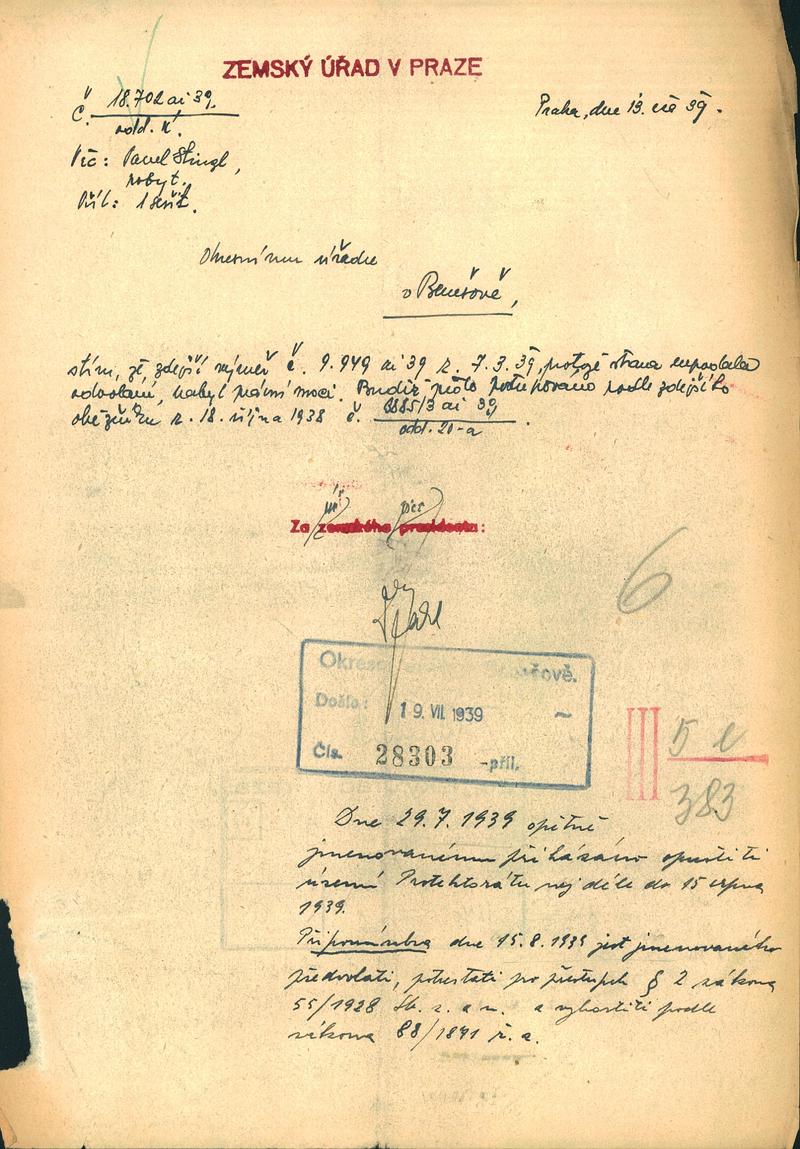 ZEMSKÝ ÚŘAD V PRAZE
Č. 18.702 ai 39.
odd. 
Praha, dne 13. VII 39.
Věc: Pavel Stingl,
pobyt.
Příl: 1 sešit.
Okresnímu úřadu
v Benešově,
s tím, že zdejší výměr č. 9.949 ai 39 z 7.3.39, protože strana nepodala
odvolání, nabyl právní moci. Budiž proto postupováno podle zdejšího
oběžníku z 18. října 1938 č. ai 39
odd. 20-a
Za zemského presidenta:
6
Okres Benešově.
Došlo: 19. VII. 1939
Čís. 28303 -příl.
III 5
383
Dne 29.7.1939 opětně
jmenovanému přikázáno opustiti
území Protektorátu nejdéle do 15 srpna
1939.
Připomínka dne 15.8.1939 jest jmenovaného
předvolati, potrestati pro přestupek § 2 zákona
55/1928 Sb. z. a n. a vyhostiti podle
zákona 88/1871 ř. z.